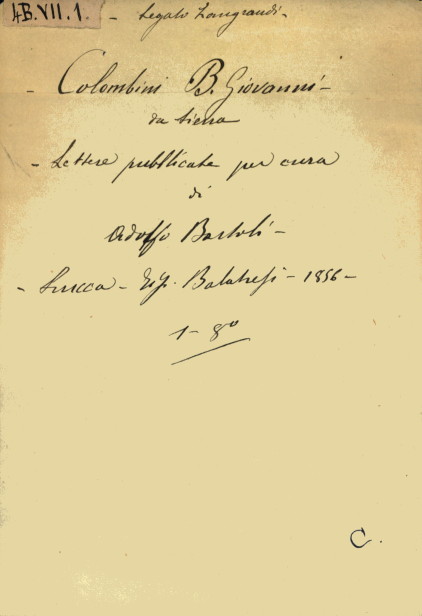 4B.VII.1.
- Legato Zangrandi -
- Colombini B. Giovanni -
da Siena
- Lettere pubblicate per cura
di
Adolfo Bartoli -
- Lucca - Tip. Balatresi - 1856 -
1 - 8°
C.